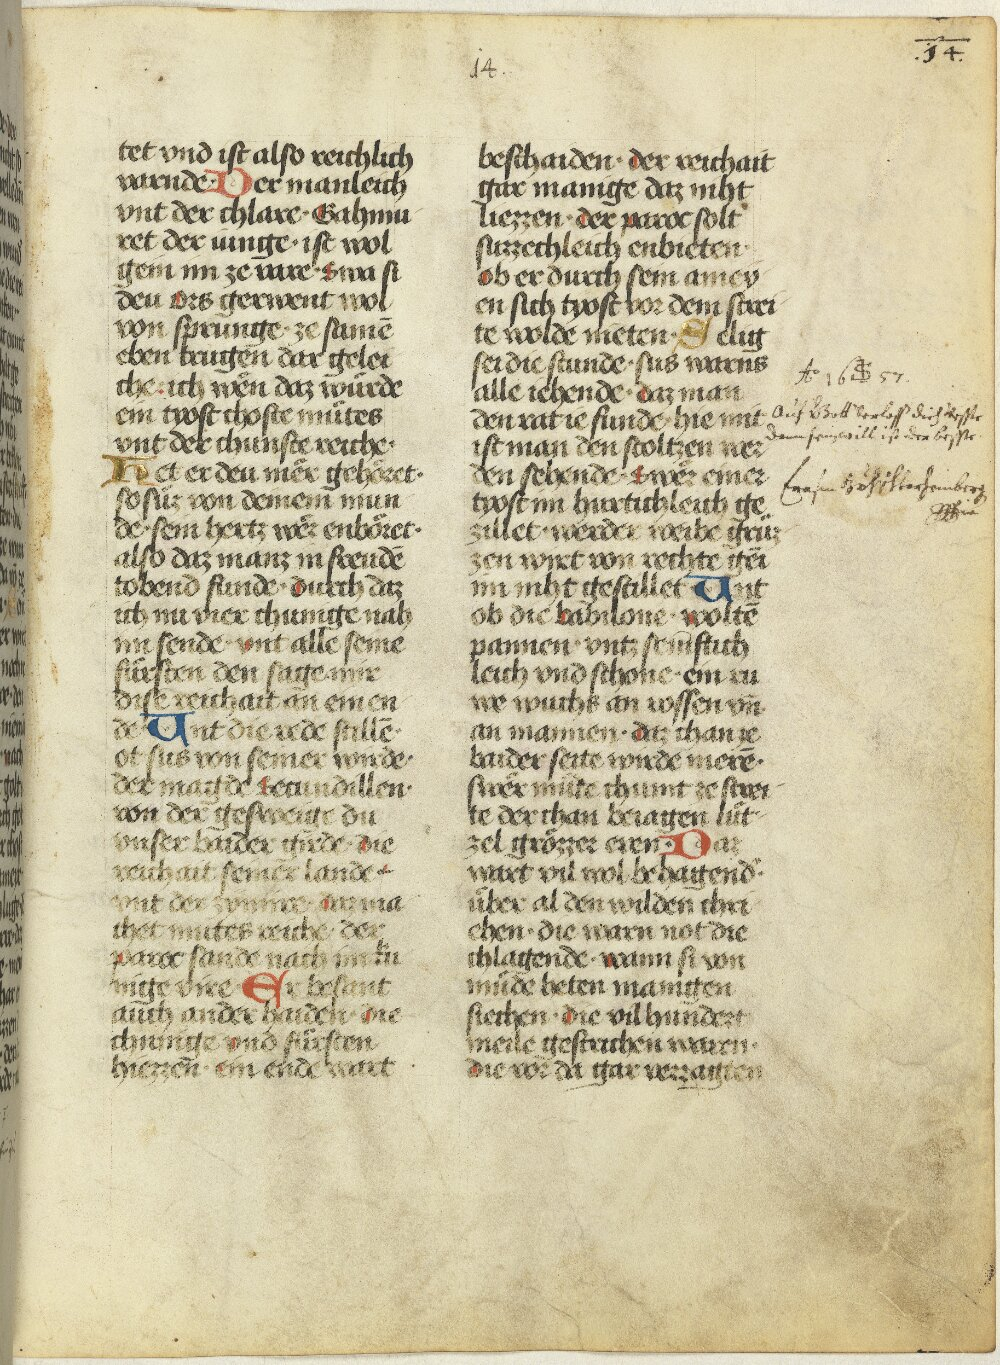 14.
.14.
tet vnd ist also reichlich
varnde· Der manleich
vnt der chlare· Gahmu
ret der iunge· ist wol
gein im ze vare· Swa si
deu Ors gewent wol
von sprunge· ze samē
eben trugen dar gelei
che· ich wen daz wurde
ein tyost choste mûtes
vnt der chunste reiche·
Het er deu mër gehôret·
so sûz von deinem mun
de· sein hertz wër enbôret·
also daz manz in freudē
tobend funde· Durch daz
ich nu vier chunige nah
im sende· vnt alle seine
fürsten den sage mir
dise reichait an einen
de· Vnt die rede stillē·
ot sus von seiner wirde·
der magde Secundillen·
von der gesweige du
vnser baider girde· die
reichait seiner lande·
vnt der zymire· daz ma
chet mutes reiche· der
paroc sande nach im ku
nige vire· Er besant
auch ander haiden· die
chunige· vnd fürsten
hiezzen· ein ende wart
beschaiden· der reichait
gar manige daz niht
liezzen· der paroc solt
suzzechleich enbieten·
ob er durch sein amey
en sich tyost vor dem strei
te wolde nieten· Selig
sei die stunde· sus warns
alle iehende· daz man
den rat ie funde· hie mit
ist man den stoltzen wer
den sehende· Swër einer
tyost im hurtichleich ge
zillet· werder weibe gruz
zen wirt von rechte gei
im niht gestillet Vnt
ob die babilone· woltē
pannen· vntz seinstich
leich vnd schone· ein ru
we wuchs an rossen vn̄
an mannen· daz chan ze
baider seite wirde merē·
swër mûte chumt ze strei
te der chan beiagen lüt
zel grôzzer eren· Daz
wart vil wol behagend·
über al den wilden chri
chen· die warn not die
chlagende· wann si von
müde heten manigen
siechen· die vil hundert
meile gestrichen waren·
die vor da gar verzagten
Aō 16 57.
Auf Gott verlass dich veste
dann sein will ist der beste